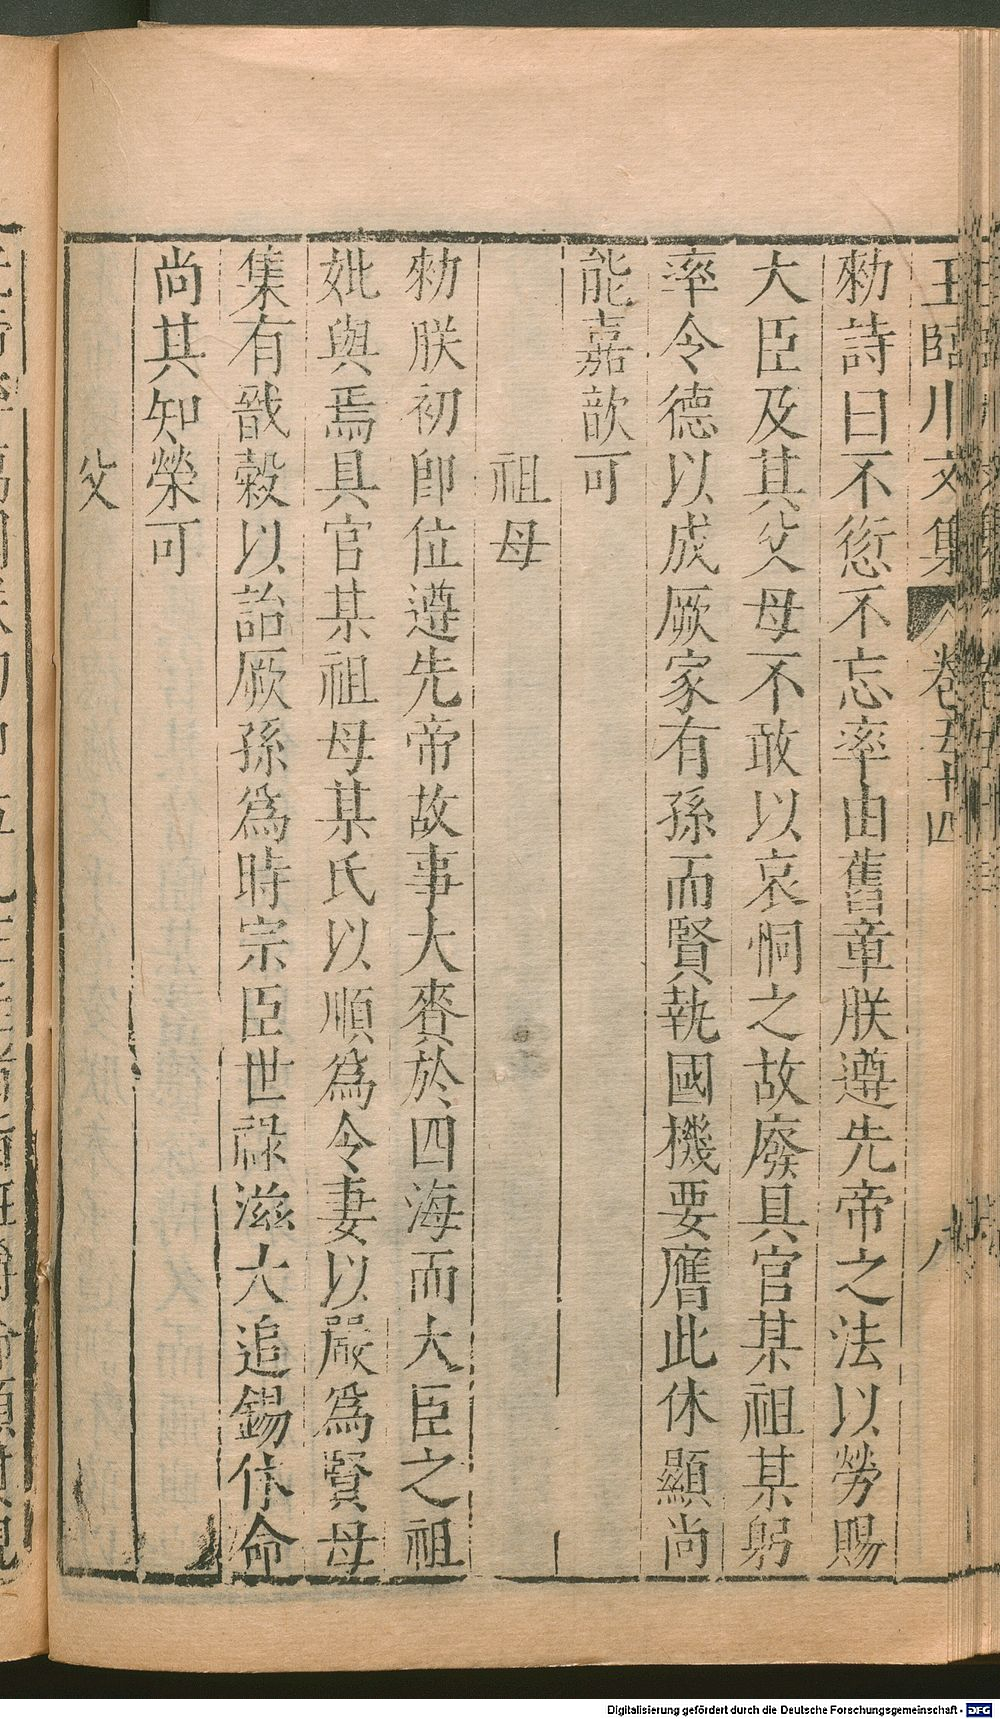 王臨川文集 卷五十四 八
勑詩曰不愆不忘率由舊章朕遵先帝之法以勞賜
大臣及其父母不敢以哀恫之故廢具官某祖某躬
率令德以成厥家有孫而賢執國機要膺此休顯尚
能嘉歆可
祖母
勑朕初卽位遵先帝故事大賚於四海而大臣之祖
妣與焉具官某祖母某氏以順爲令妻以嚴爲賢母
集有戩穀以詒厥孫爲時宗臣世祿滋大追錫作命
尚其知榮可
父
Digitalisierung gefördert durch die Deutsche Forschungsgemeinschaft - DFG